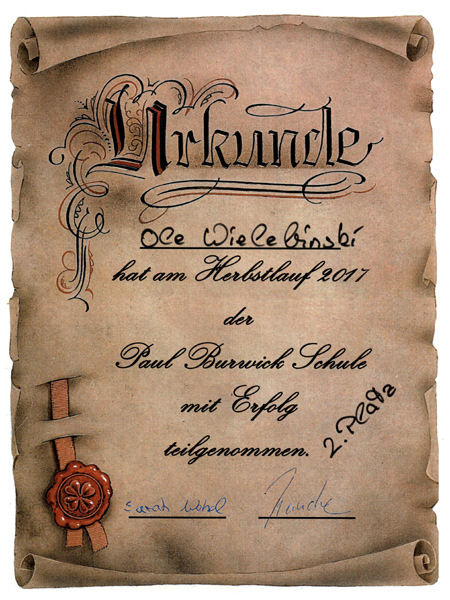 Urkunde
Ole Wielebinski
hat am Herbstlauf 2017
der
Paul Burwick Schule
mit Erfolg
teilgenommen.
2. Platz
Sarah